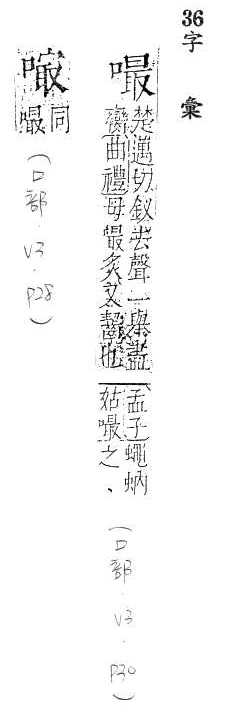 36字彙
嘬
楚邁切釵去聲一舉盡
臠曲禮毋嘬炙又齧也
孟子蠅蚋
姑嘬之、
(口部.V3.P30)
同
嘬
(口部.V3.P28)